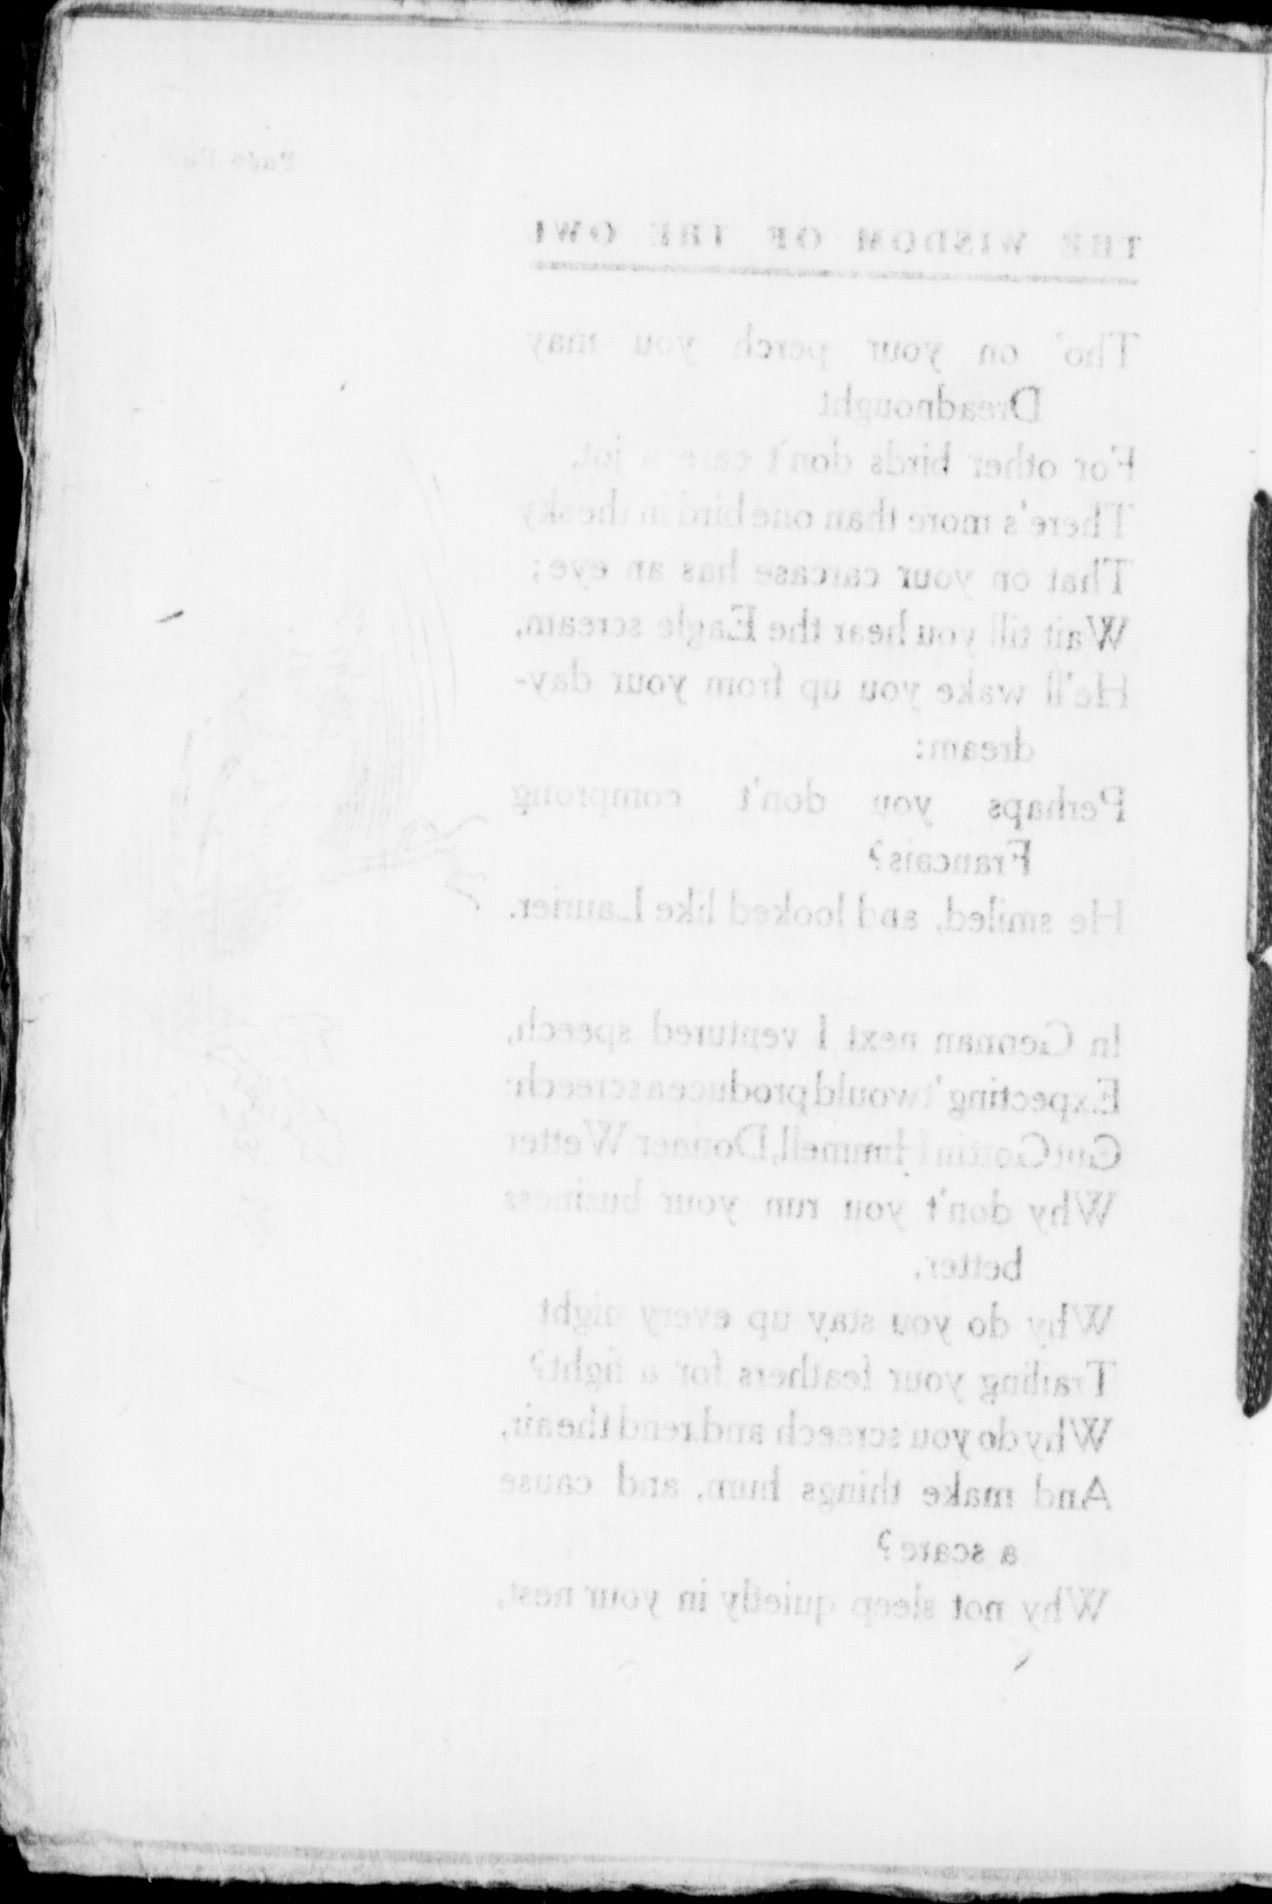 THE WISDOM OF THE OWL
Tho' on your perch you may
Dreadnought
For other birds don't care a jot,
There's more than one bird in the sky
That on your carcase has an eye;
Wait till you hear the Eagle scream,
He'll wake you up from your day-
dream:
Perhaps you don't comprong
Francais?
He smiled, and looked like Laurier.
In German next I ventured speech,
Expecting 'twould produce a screech:
Gut Gott in Himmell, Donner Wetter
Why don't you run your business
better,
Why do you stay up every night
Trailing your feathers for a fight?
Why do you screech and rend the air,
And make things hum, and cause
a scare?
Why not sleep quietly in your nest,